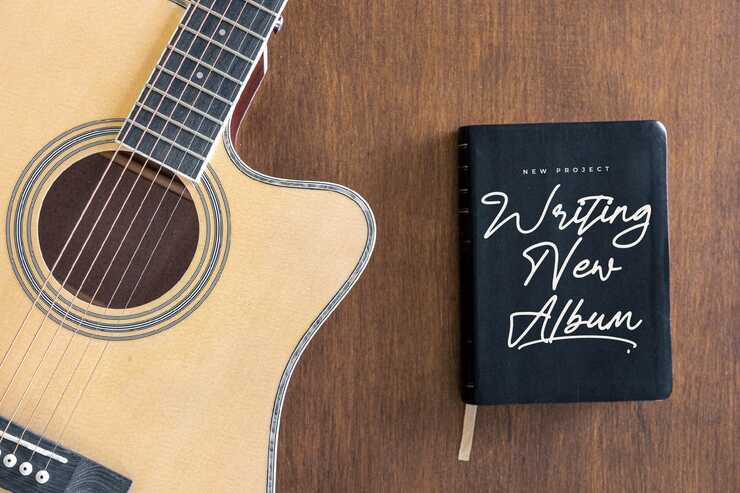 NEW PROJECT
Writing
New
Album